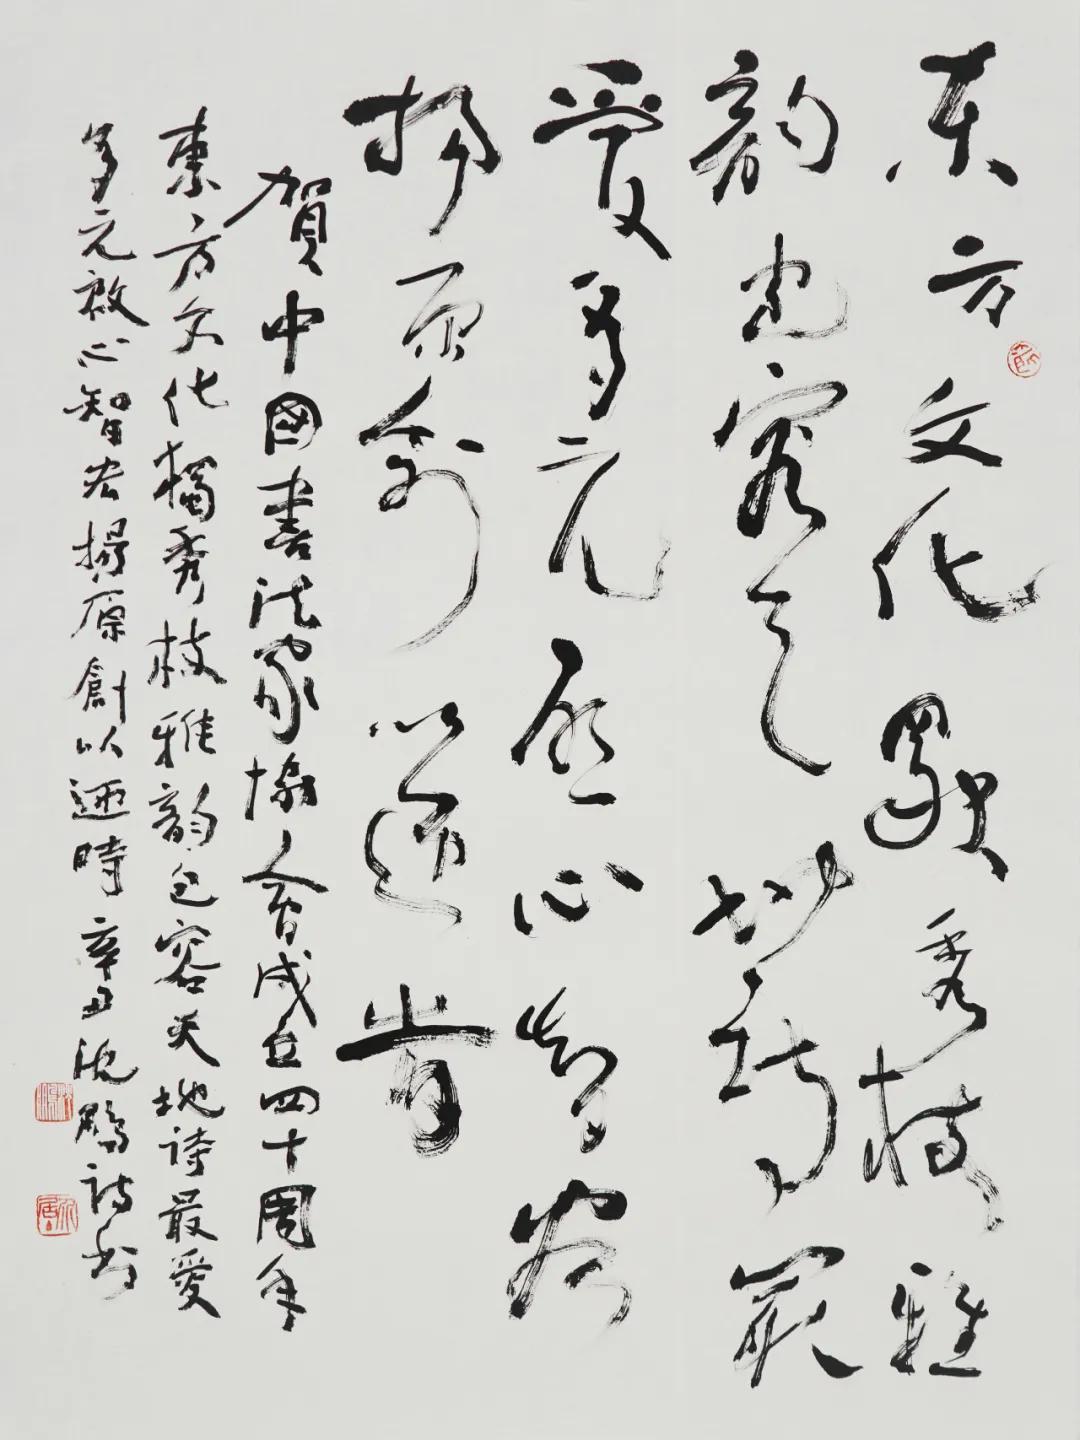 東方文化獨秀枝雅
韵包容天地詩最
愛多元啟心智宏
揚原創以時
賀中國書法家協會成立四十周年
東方文化獨秀枝雅韵包容天地詩最愛
多元啟心智宏揚原創以時辛丑沈鵬詩书